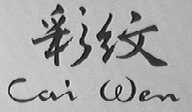 彩纹
Cai Wen